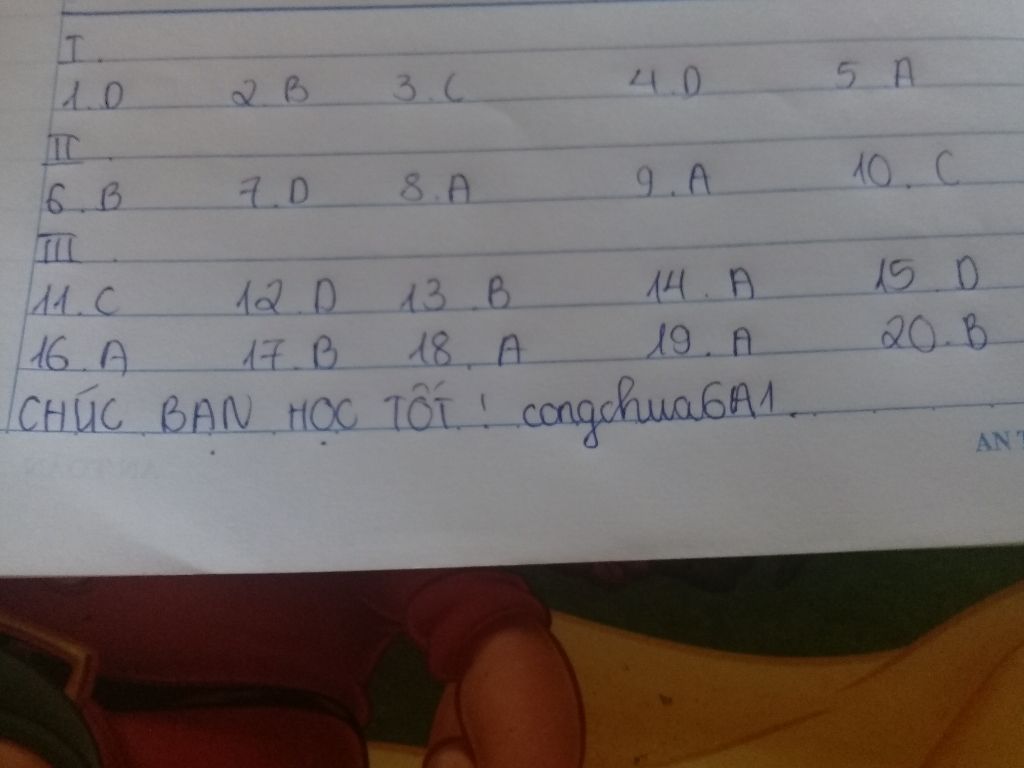 I.
1. D 2. B 3. C 4. D 5. A
II.
6. B 7. D 8. A 9. A 10. C
III.
11. C 12. D 13. B 14. A 15. D
16. A 17. B 18. A 19. A 20. B
CHÚC BẠN HỌC TỐT! congchua6A1.
AN T